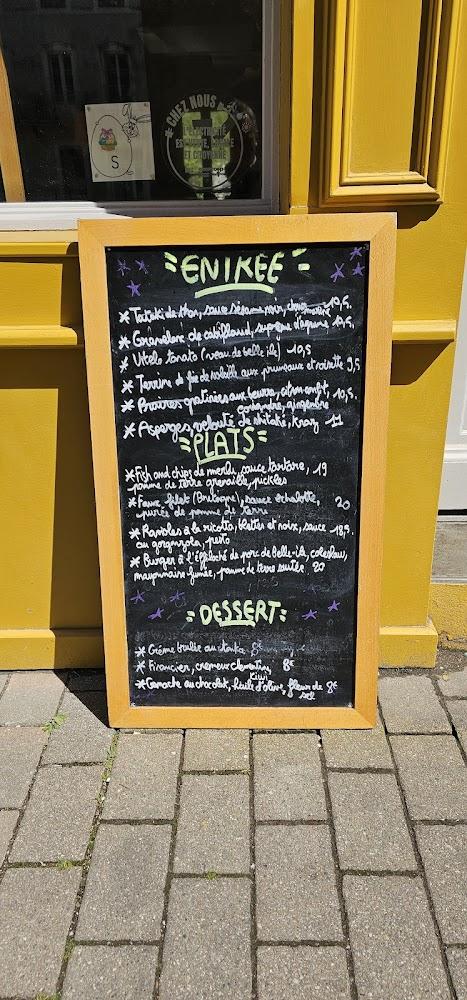 CHEZ NOUS
S
ENTRÉE
* Tataki de thon, sauce sésame noir, 10,5
* Gravelax de cabillaud, suprême d'agrume 10,5
* Vitelo tonato (veau de belle ile) 10,5
* Terrine de foie de volaille aux pruneaux et noisette 9,5
* Praires gratinées aux beurre, citron confit, 10,5
coriandre, gingembre
* Asperges, velouté de shitaké, 11
PLATS
* Fish and chips de merlu, sauce tartare, 19
pomme de terre grenaille, pickles
* Faux filet (Bretagne), sauce échalotte, 20
purée de pomme de terre
* Ravioles à la ricotta, blettes et noix, sauce 18,5
au gorgonzola, pesto
* Burger à l'effiloché de porc de Belle-île, coleslaw,
mayonnaise fumée, pomme de terre sautée 20
DESSERT
* Crème brulée au tonka 8€
* Financier, cremeux clementine, 8€
kiwi
* Ganache au chocolat, huile d'olive, fleur de 8€
sel